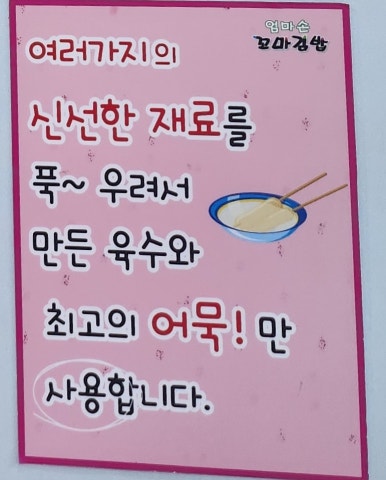 엄마손
꼬마김밥
여러가지의
신선한 재료를
푹~ 우려서
만든 육수와
최고의 어묵! 만
사용합니다.